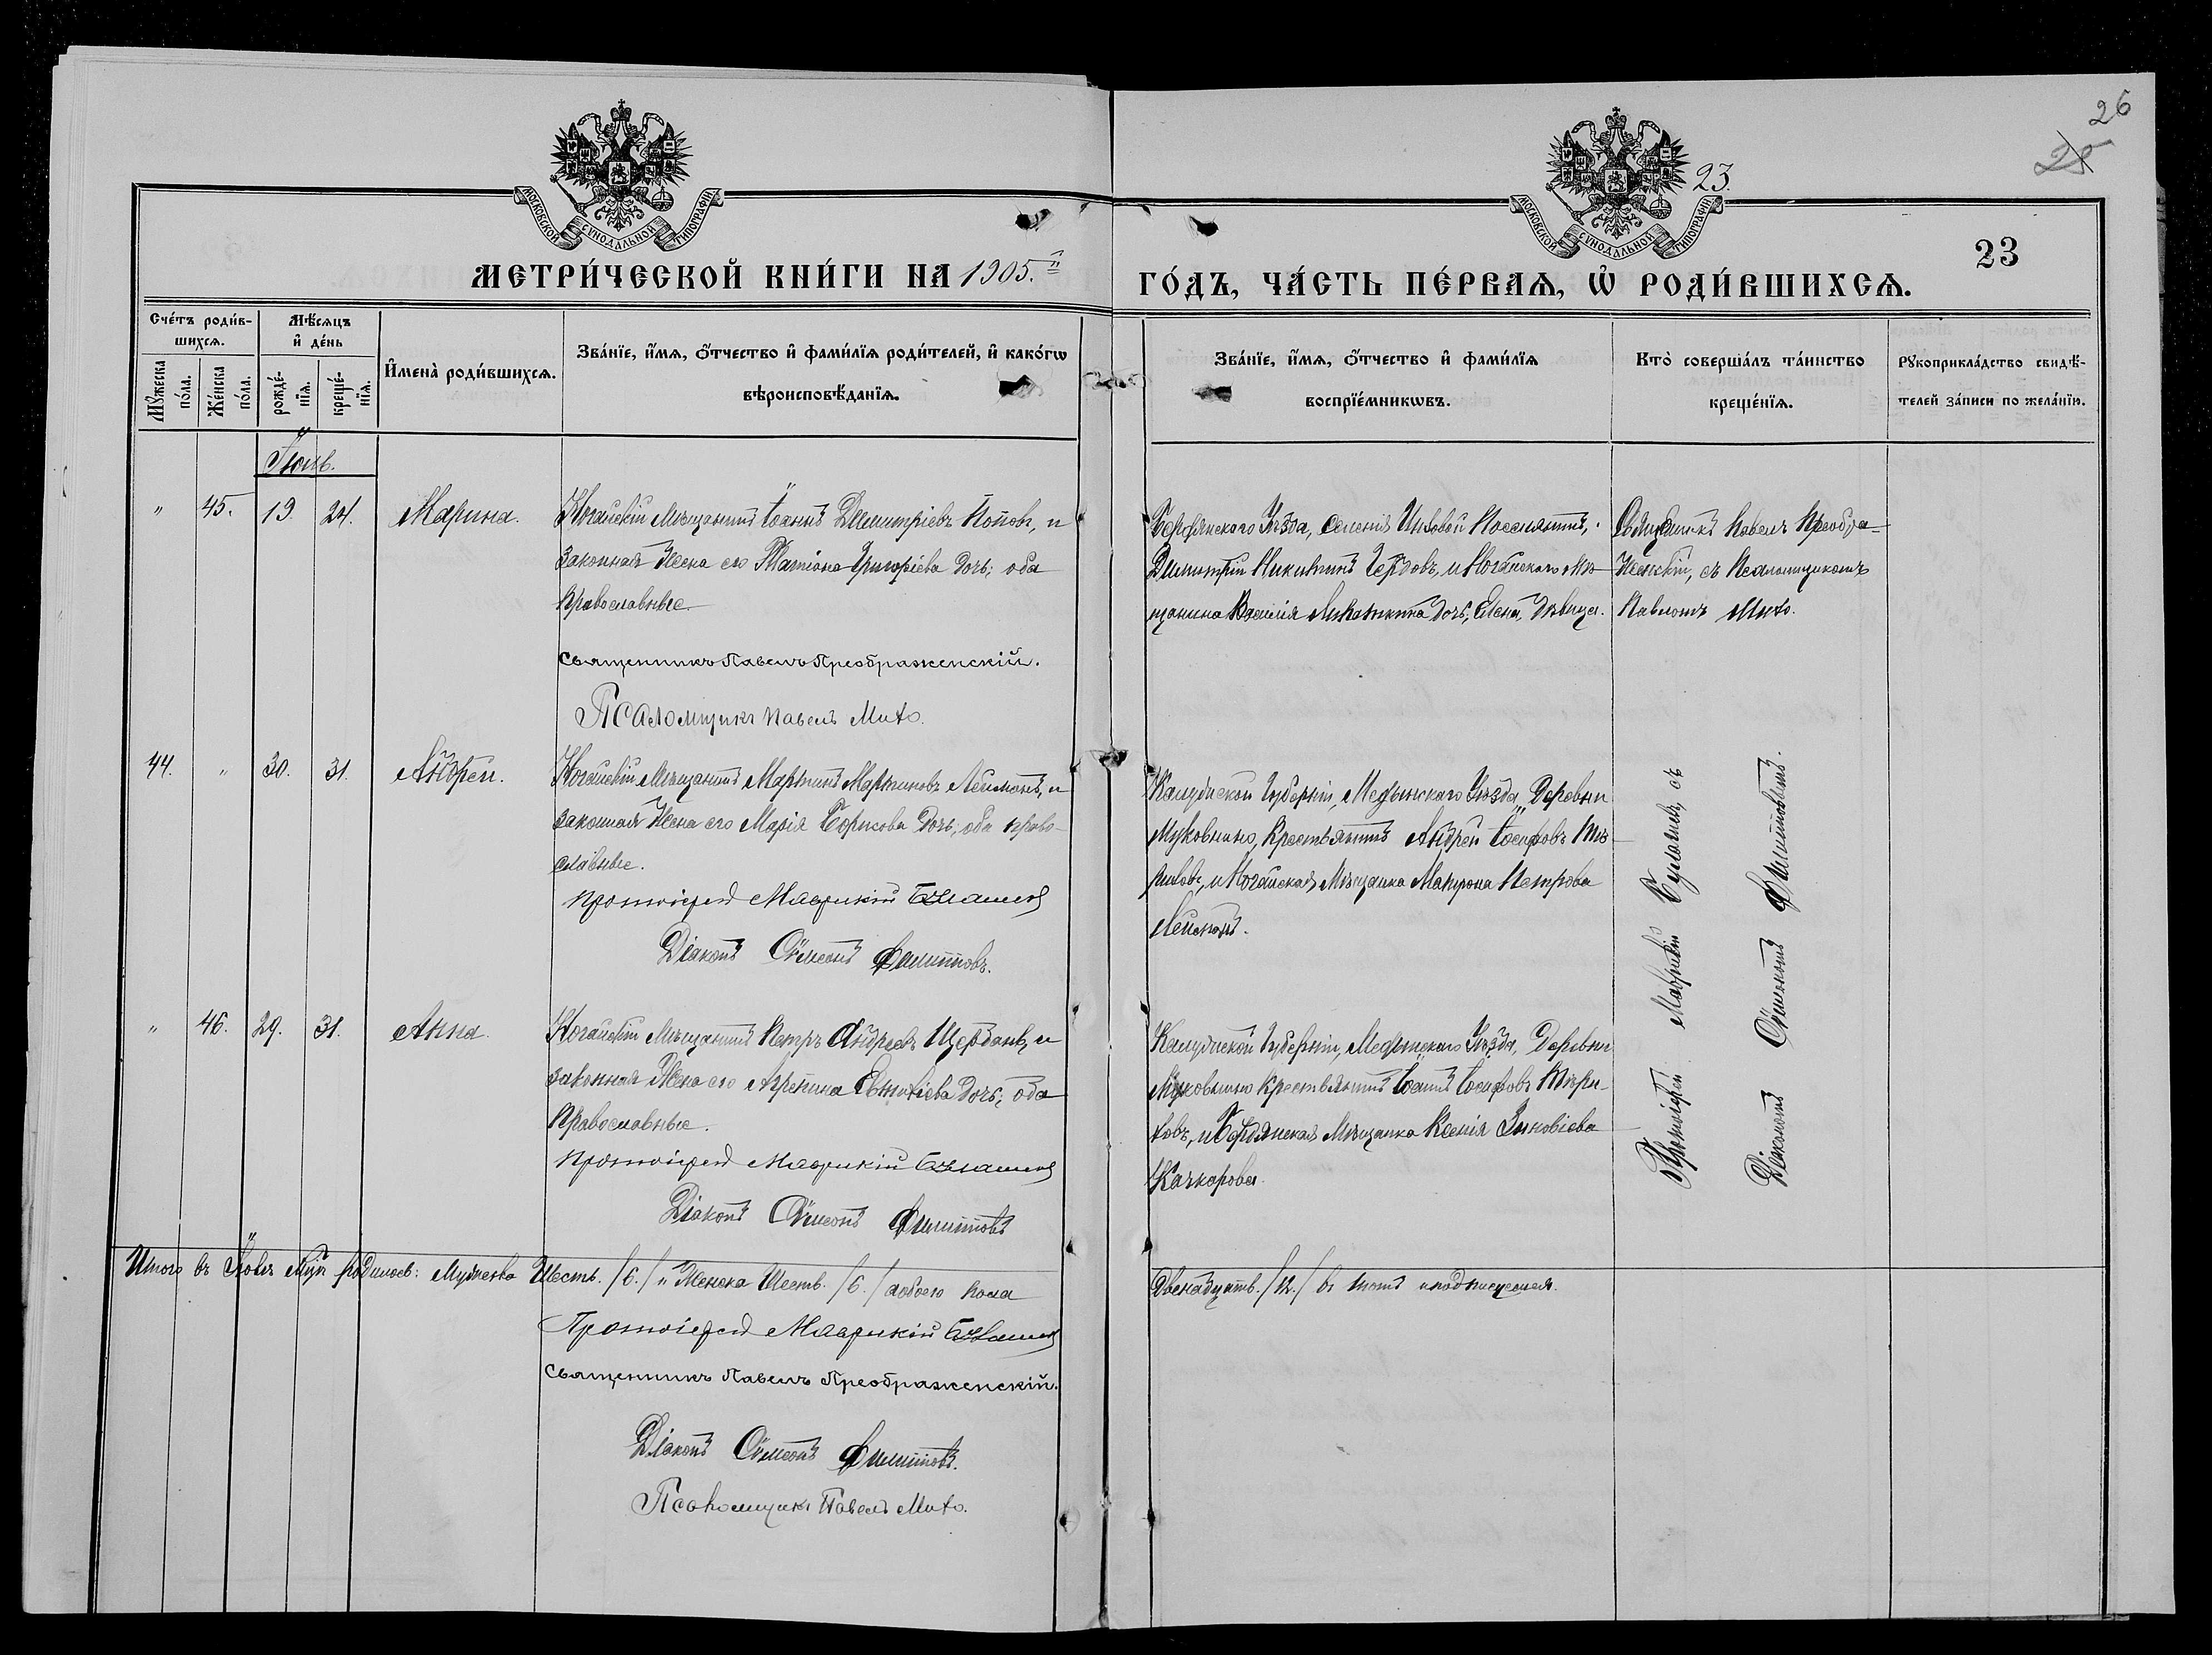 26
25
23.
МОСКОВСКОЙ СѴНОДАЛЬНОЙ ТИПОГРАФІИ
МОСКОВСКОЙ СѴНОДАЛЬНОЙ ТИПОГРАФІИ
23
МЕТРИ́ЧЕСКОЙ КНИ́ГИ НА 1905.й
ГО́ДЪ, ЧА́СТЬ ПЕ́РВАѦ, Ѡ҆ РОДИ́ВШИХСѦ.
Сче́тъ роди́в-
шихсѧ.
Мѣ́сѧцъ
и҆ де́нь
Мꙋ́жеска
по́ла.
Же́нска
по́ла.
рожде́-
нїѧ.
креще́-
нїѧ.
И҆мена̀ роди́вшихсѧ.
Зва́нїе, и҆́мѧ, ѻ҆́тчество и҆ фами́лїѧ роди́телей, и҆ како́гѡ
вѣроисповѣ́данїѧ.
Зва́нїе, и҆́мѧ, ѻ҆́тчество и҆ фами́лїѧ
воспрїе́мникѡвъ.
Кто̀ соверша́лъ та́инство
креще́нїѧ.
Рꙋкоприкла́дство свидѣ́-
телей за́писи по жела́нїю.
" 45. 19. 24. Марина.
Ногайскій мѣщанинъ Іоаннъ Димитріевъ Поповъ, и
законная жена его Татіана Григоріева дочь; оба
православные.
Священникъ Павелъ Преображенскій.
Псаломщикъ Павелъ Мито.
Бердянскаго уѣзда, селенія поселянинъ,
Димитрій Никитинъ и Ногайскаго мѣ-
щанина дочь, Елена, дѣвица.
Священникъ Павелъ Преобра-
женскій, съ псаломщикомъ
Павломъ Мито.
44. " 30. 31. Андрей.
Ногайскій мѣщанинъ Мартинъ Мартиновъ Лейманъ, и
законная жена его Марія Борисова дочь, оба право-
славные.
Протоіерей Маврикій
Діаконъ Сѵмеонъ Филипповъ.
Калужской губерніи, Медынскаго уѣзда, деревни
крестьянинъ Андрей Іосифовъ
и Ногайская мѣщанка Матрона Петрова
Лейманъ.
" 46. 29. 31. Анна.
Ногайскій мѣщанинъ Петръ Андреевъ Щербакъ, и
законная жена его Агрепина дочь; оба
православные.
Протоіерей Маврикій
Діаконъ Сѵмеонъ Филипповъ
Калужской губерніи, Медынскаго уѣзда, деревни
крестьянинъ Іоаннъ Іосифовъ
и Бердянская мѣщанка Ксенія Зиновіева
Качкарова.
Протоіерей Маврикій съ
Діакономъ Сѵмеономъ Филипповымъ.
Итого въ мцѣ родилось: мужеска Шесть. /6./ и женска Шесть. /6./ а обоего пола
Двенадцать. /12./ въ томъ и подписуемся.
Протоіерей Маврикій
Священникъ Павелъ Преображенскій.
Діаконъ Сѵмеонъ Филипповъ.
Псаломщикъ Павелъ Мито.